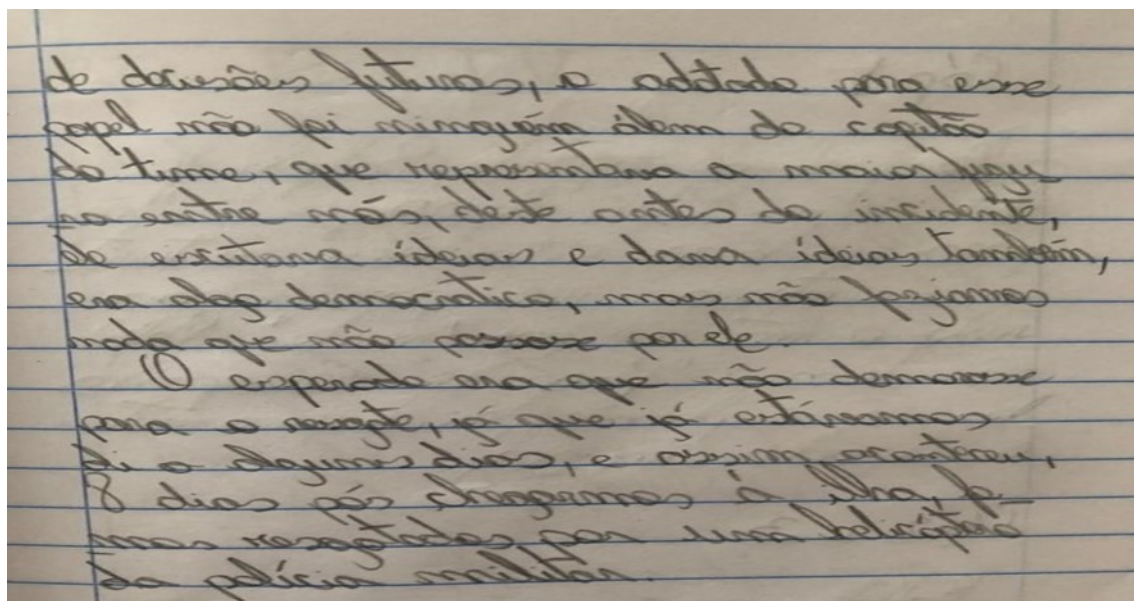 de decisões futuras, o adotado para esse
papel não foi ninguém álem do capitão
do time, que representava a maior figu
ra entre nós, deste antes do incidente,
ele escutava ideias e dava ideias também,
era algo democratico, mais não fazíamos
nada que não passasse por ele.
O esperado era que não demorasse
para o resgate, já que já estávamos
li a alguns dias, e assim aconteceu,
8 dias pós chegarmos à ilha, fo_
mos resgatados por um helicóptero
da polícia militar.